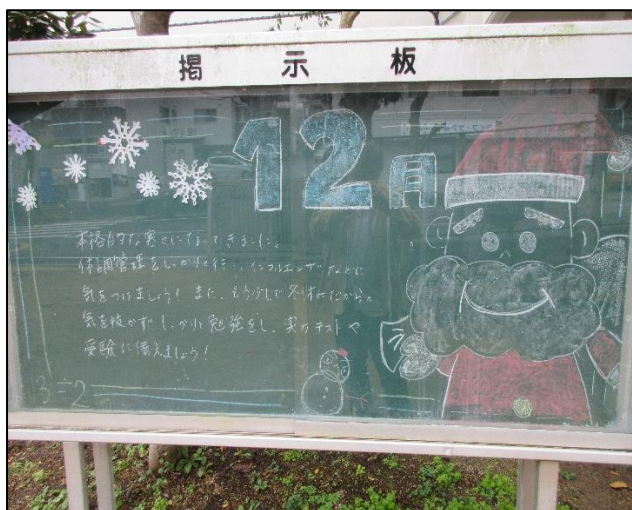 掲示板
12月
本格的な寒さになってきました。
体調管理をしっかりと行い、インフルエンザなどに
気をつけましょう！また、もう少しで冬休みだからと
気を抜かずしっかり勉強をし、実力テストや
受験に備えましょう！
3-2